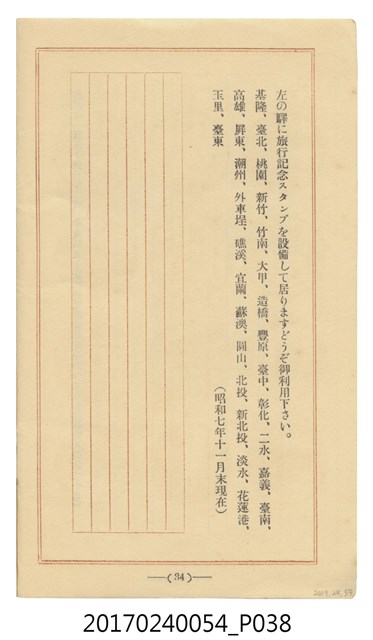 左の驛に旅行記念スタンプを設備して居りますどうぞ御利用下さい。
基隆、臺北、桃園、新竹、竹南、大甲、造橋、豐原、臺中、彰化、二水、嘉義、臺南、
高雄、屛東、潮州、外車埕、礁溪、宜蘭、蘇澳、圓山、北投、新北投、淡水、花蓮港、
玉里、臺東
(昭和七年十一月末現在)
(34)
20170240054_P038